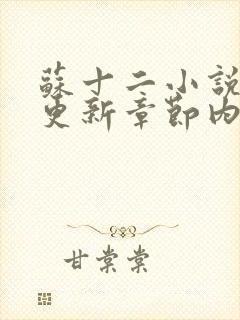 蘇十二小說
更新章節內
甘棠棠